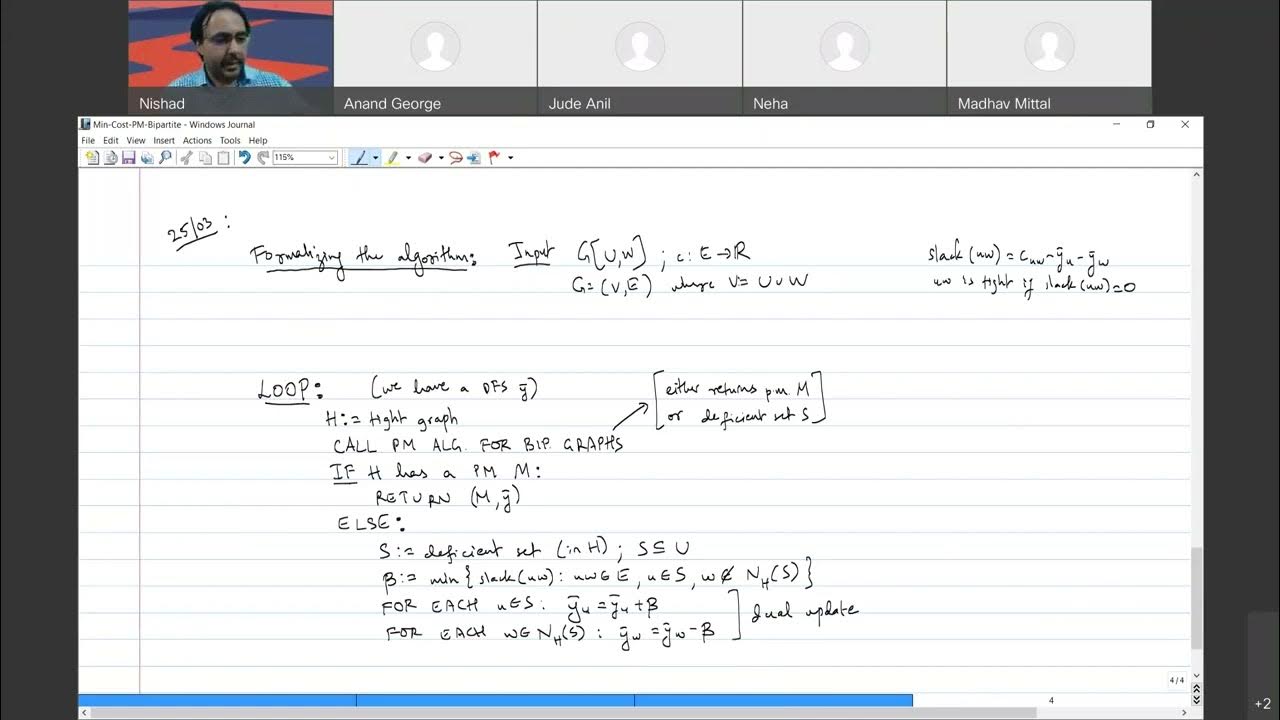 Nishad
Anand George
Jude Anil
Neha
Madhav Mittal
Min-Cost-PM-Bipartite - Windows Journal
File Edit View Insert Actions Tools Help
115%
25/03:
Formalizing the algorithm: Input G[U,W] ; c: E→R
G=(V,E) where V= U∪W
slack(uw) = c_uw - ȳ_u - ȳ_w
uw is tight if slack(uw)=0
LOOP: (we have a DFS ȳ)
H:= tight graph
CALL PM ALG. FOR BIP. GRAPHS
[either returns p.m. M
or deficient set S]
IF H has a PM M:
RETURN (M,ȳ)
ELSE:
S:= deficient set (in H) ; S⊆U
β:= min{slack(uw): uw∈E, u∈S, w∉N_H(S)}
FOR EACH u∈S: ȳ_u = ȳ_u+β
FOR EACH w∈N_H(S): ȳ_w = ȳ_w-β
] dual update
4/4
4
+2